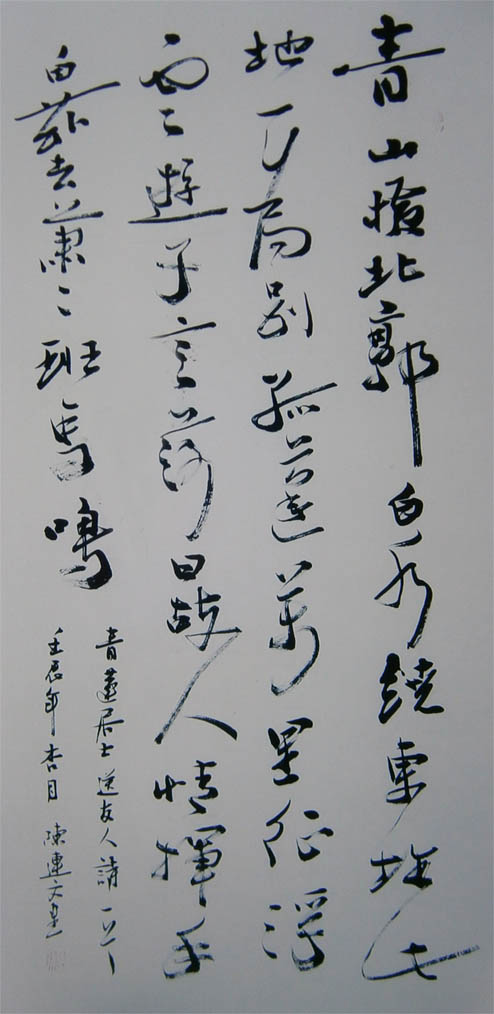 青山橫北郭白水繞東城此
地一為別孤蓬萬里征浮
雲遊子意落日故人情揮手
自茲去蕭〻班馬鳴
青蓮居士送友人詩一首
壬辰年杏月 陳連文書